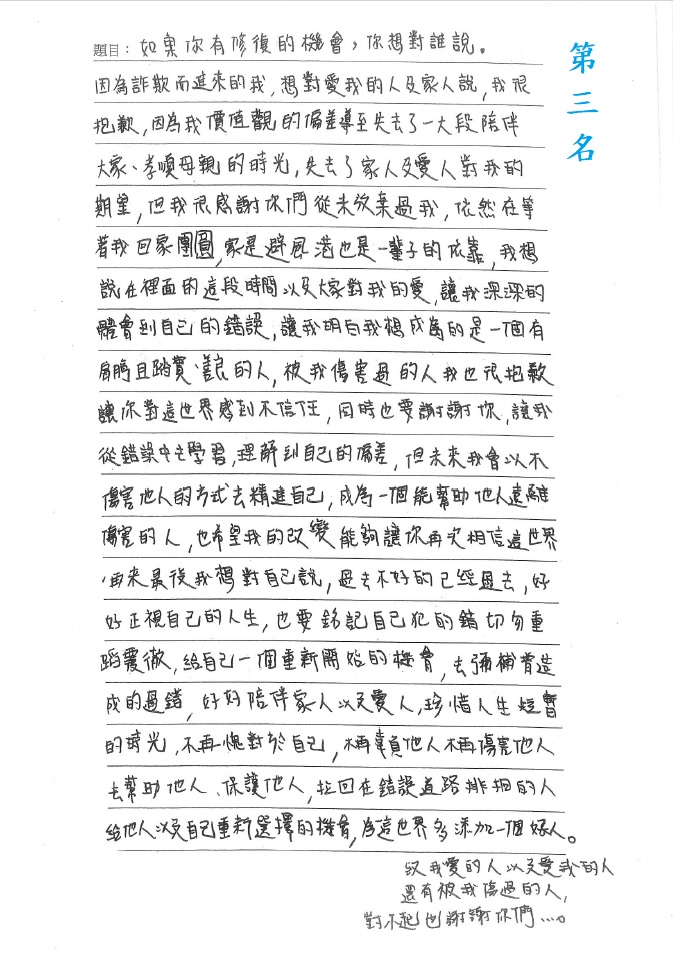 題目：如果你有修復的機會，你想對誰說。
第三名
因為詐欺而進來的我，想對愛我的人及家人說，我很
抱歉，因為我價值觀的偏差導至失去了一大段陪伴
大家、孝順母親的時光，失去了家人及愛人對我的
期望，但我很感謝你們從未放棄過我，依然在等
著我回家團圓，家是避風港也是一輩子的依靠，我想
說在裡面的這段時間以及大家對我的愛，讓我深深的
體會到自己的錯誤，讓我明白我想成為的是一個有
肩膀且踏實、善良的人，被我傷害過的人我也很抱歉
讓你對這世界感到不信任，同時也要謝謝你，讓我
從錯誤中去學習，理解到自己的偏差，但未來我會以不
傷害他人的方式去精進自己，成為一個能幫助他人遠離
傷害的人，也希望我的改變能夠讓你再次相信這世界
，再來最後我想對自己說，過去不好的已經過去，好
好正視自己的人生，也要銘記自己犯的錯切勿重
蹈覆徹，給自己一個重新開始的機會，去彌補曾造
成的過錯，好好陪伴家人以及愛人，珍惜人生短暫
的時光，不再愧對於自己，不再辜負他人不再傷害他人
去幫助他人、保護他人，拉回在錯誤道路徘徊的人
給他人以及自己重新選擇的機會，為這世界多添加一個好人。
致我愛的人以及愛我的人
還有被我傷過的人，
對不起也謝謝你們....。